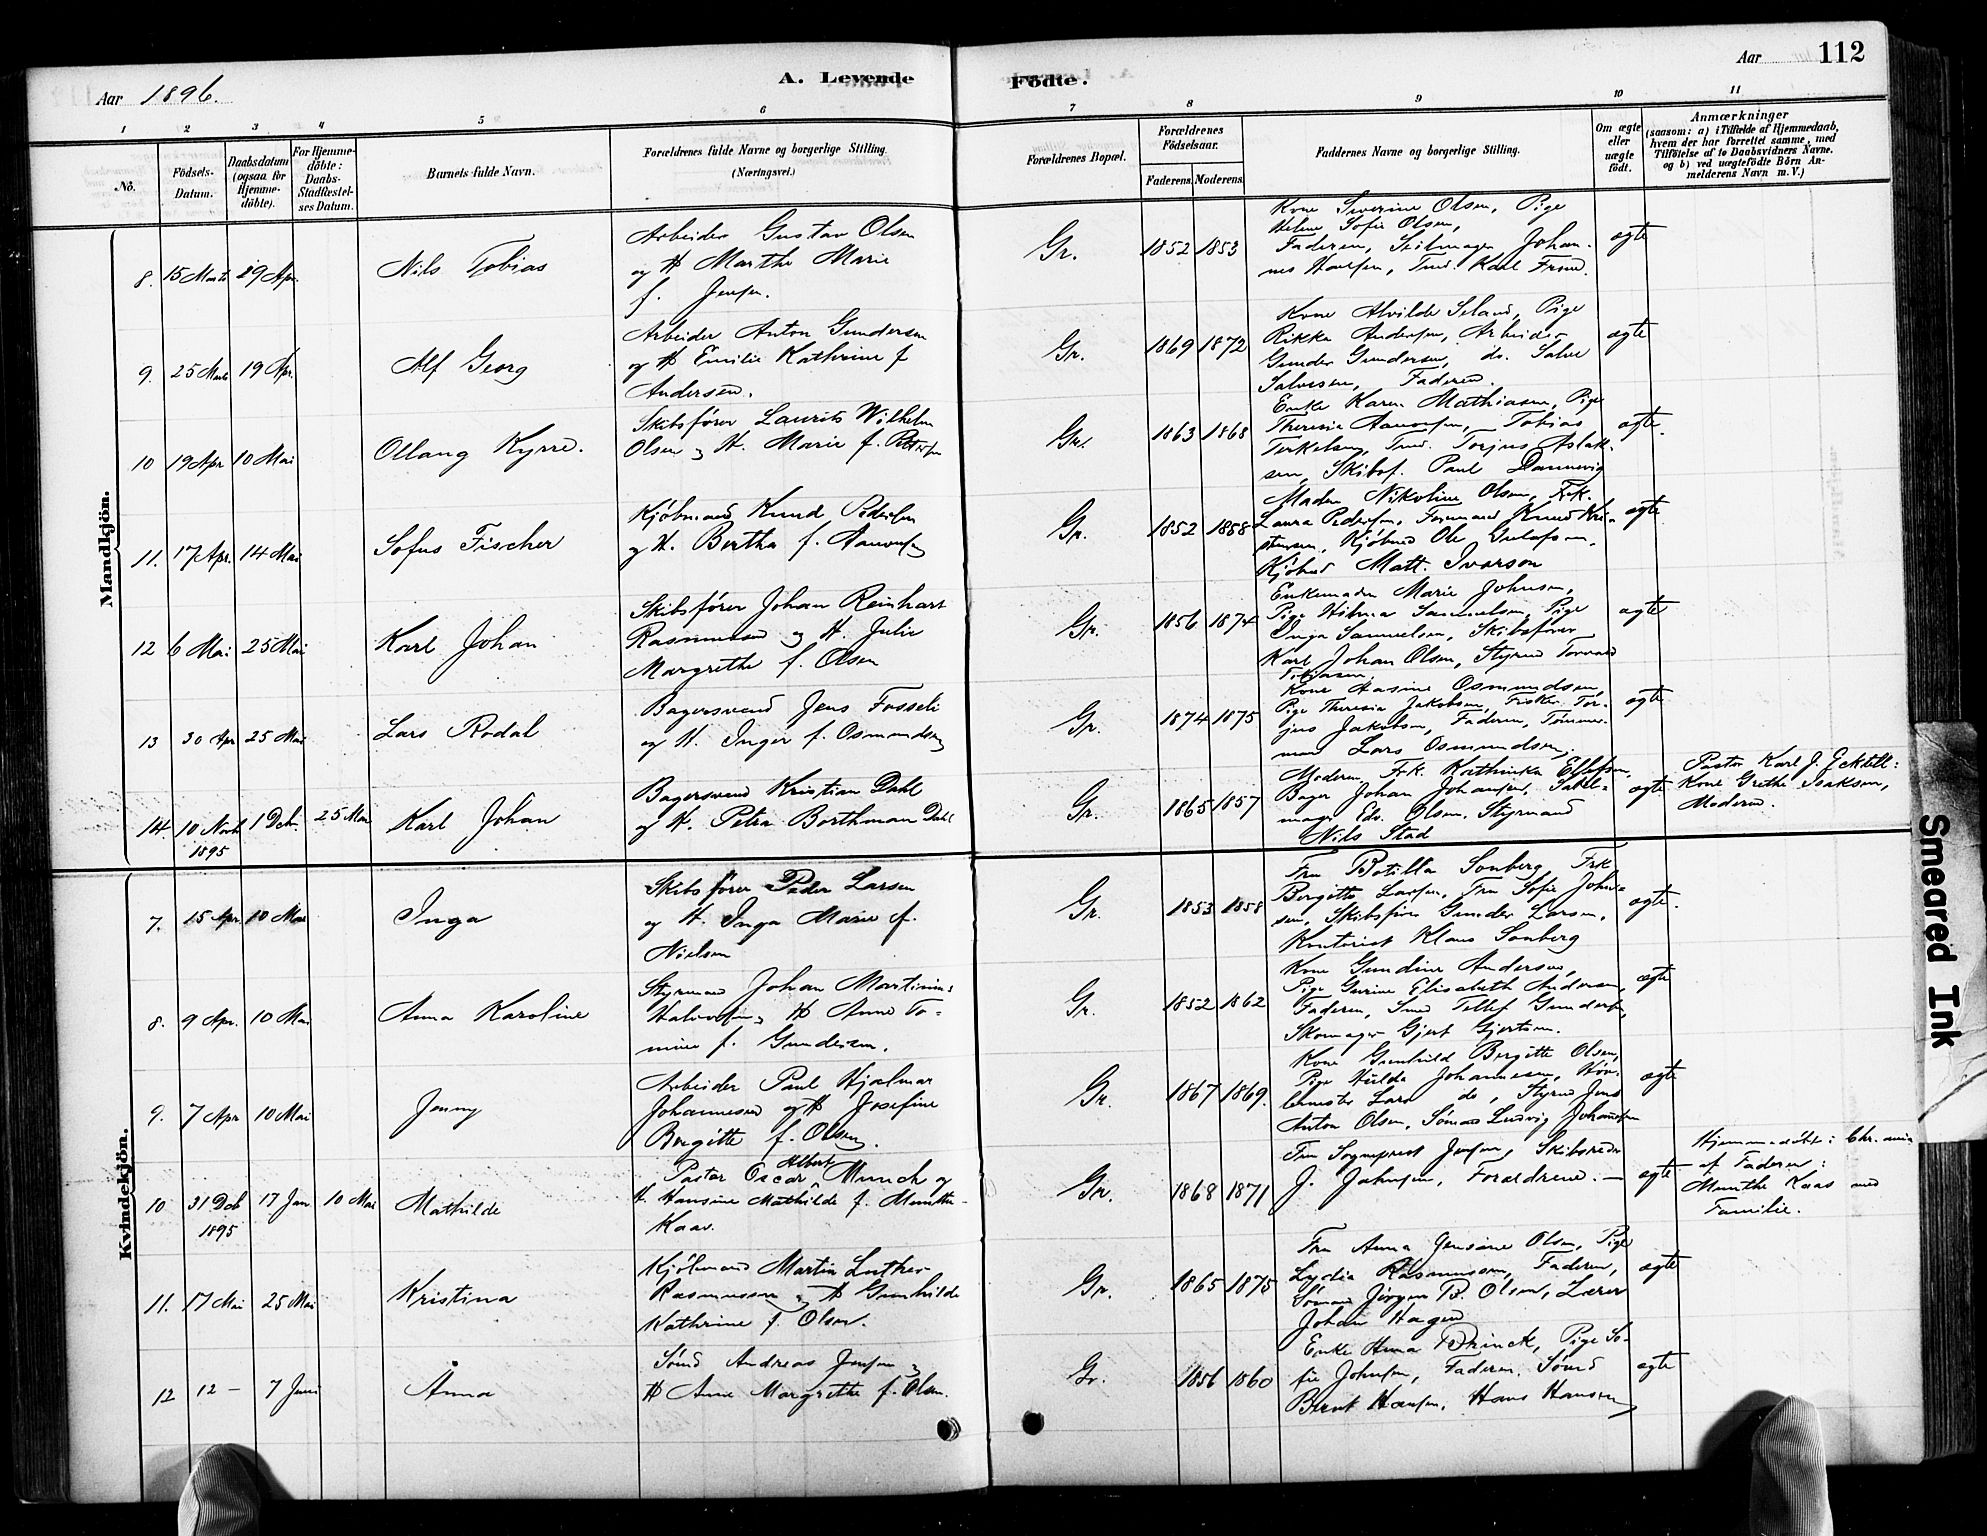 Aar 1896.
A. Levende Födte.
Aar 112
1 2 3 4 5 6 7 8 9 10 11
No.
Födsels-Datum.
Daabsdatum (ogsaa for Hjemme-döbte).
For Hjemme-döbte: Daabs-Stadfæstel-ses Datum.
Barnets fulde Navn.
Forældrenes fulde Navne og borgerlige Stilling. (Næringsvei.)
Forældrenes Bopæl.
Forældrenes Födselsaar.
Faderens. Moderens.
Faddernes Navne og borgerlige Stilling.
Om ægte eller uægte födt.
Anmærkninger
(saasom: a) i Tilfælde af Hjemmedaab,
hvem der har forrettet samme, med
Tilföielse af to Daabsvidners Navne.
og b) ved uægtefödte Börn An-
melderens Navn m. V.)
Mandkjön.
8. 15 Marts 19 Apr. Nils Tobias
Arbeider Gustav Olsen
og H Marthe Marie
f. Jensen.
Gr. 1852 1853
Kone Severine Olsen, Pige
Helene Sofie Olsen,
Faderen, Johan-
nes Karl
ægte
9. 25 Marts 19 Apr. Alf Georg
Arbeider Anton Gundersen
og H Emilie Kathrine f
Andersen.
Gr. 1869 1872
Kone Alvilde Seland, Pige
Rikka Andersen, Arbeider
Gunder Gundersen, do. Salve
Salvesen, Faderen.
ægte
10 19 Apr 10 Mai Ollang Kyrre.
Skibsfører Laurits Wilhelm
Olsen og H. Marie f.
Gr. 1863 1868
Enke Karen Mathiasen, Pige
Theresia Tobias
Terkelsen, Torjus Aslak-
sen, Skibsf. Paul Dannevig
ægte.
11. 17 Apr. 14 Mai Sofus Fischer
Kjøbmand Knud Pedersen
og H. Bertha f.
Gr. 1852 1858
Madam Nikoline Olsen, Frk.
Laura Pedersen, Knud Kri-
stensen, Kjøbmd Ole
Kjøbmd Matt. Ivarson
ægte.
12 6 Mai 25 Mai Karl Johan
Skibsfører Johan Reinhart
Rasmussen og H. Julie
Margrethe f. Olsen
Gr. 1856 1874
Enkemadm Marie Johnsen,
Pige Hilma Samuelsen, Pige
Inga Samuelsen, Skibsfører
Karl Johan Olsen, Styrmd
Tobiasen.
ægte
13 30 Apr 25 Mai Lars Rodal
Bagersvend Jens Fosseli
og H. Inger f. Osmundsen
Gr. 1874 1875
Kone Osmundsen,
Pige Theresia Jakobsen, Fisker Tor-
jus Jakobsen, Faderen, Tømmer-
mand Lars Osmundsen.
ægte
14. 10 Novb 1895 1 Dcb. 25 Mai Karl Johan
Bagersvend Kristian Dahl
og H. Petra Borthman Dahl
Gr. 1865 1857
Moderen, Frk. Kathinka Ellefsen,
Bager Johan Johansen,
mager Edv. Olsen, Styrmand
Nils Stad
ægte
Pastor Karl J.
Kone Grethe Isaksen,
Moderen.
Kvindekjön.
7. 15 Apr. 10 Mai Inga
Skibsfører Peder Larsen
og H. Inga Marie f.
Nielsen
Gr. 1853 1858
Fru Botilla Sonberg Frk
Bergitte Larsen, Fru Sofie John-
sen, Skibsfører Gunder Larsen,
Kontorist Klaus Sonberg
ægte.
8. 9 Apr. 10 Mai Anna Karoline
Styrmand Johan Martinius
Halvorsen og H Anne To-
mine f. Gundersen.
Gr. 1852 1862
Kone Gundine Andersen,
Pige Gurine Elisabeth Andersen,
Faderen, Smed Tellef Gundersen,
Skomager Gjert Gjertsen.
ægte
9. 7 Apr 10 Mai Jenny
Arbeider Paul Hjalmar
Johannesen og H Josefine
Bergitte f. Olsen.
Gr. 1867 1869.
Kone Gunhild Bergitte Olsen,
Pige Hulda Johannesen, Høv-
lemester Lars do, Styrmd Jens
Anton Olsen, Sømand Ludvig Johannesen
ægte
10 31 Dcb 1895 17 Jan 10 Mai Mathilde
Pastor Oscar Albert Munch og
H. Hansine Mathilde f. Munthe-
Kaas.
Gr. 1868 1871
Fru Sogneprest Jensen, Skibsreder
J. Johnsen, Forældrene. —
ægte
Hjemmedøbt i Chr. ania
af Faderen:
Munthe Kaas med
Familie.
11. 17 Mai 25 Mai Kristina
Kjøbmand Martin Luther
Rasmussen og H Gunhilde
Kathrine f. Olsen.
Gr. 1865 1875
Fru Anna Jensine Olsen, Pige
Lydia Rasmussen, Faderen,
Sømand Jörgen B. Olsen, Lærer
Johan Hagen
ægte
12 12 — 7 Juni Anna
Sømd Andreas Jensen og
H Anne Margrethe f. Olsen.
Gr. 1856 1860
Enke Anna Brinck, Pige So-
fie Johnsen, Faderen, Sømd
Bernt Hansen, Hans Hansen
ægte
Smeared Ink